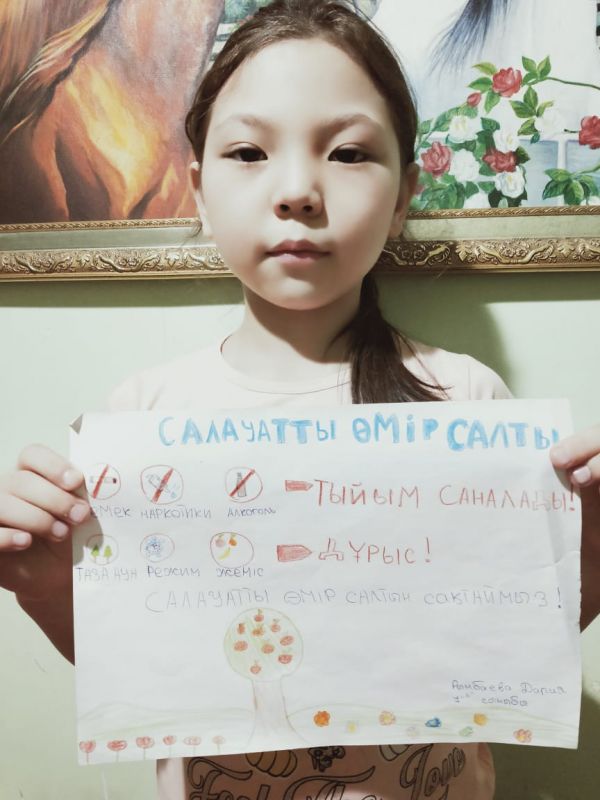 САЛАУАТТЫ ӨМІР САЛТЫ
ТЕМЕК НАРКОТИКИ АЛКОГОЛЬ ТЫЙЫМ САНАЛАДЫ!
ТАЗА АУА РЕЖИМ ЖЕМІС ДҰРЫС!
САЛАУАТТЫ ӨМІР САЛТЫН САҚТАЙМЫЗ!
Дария